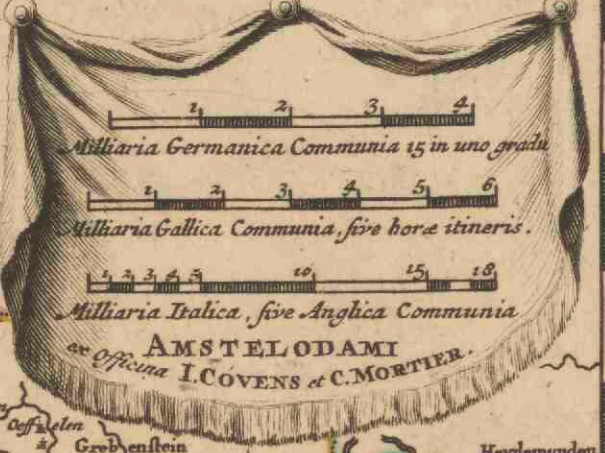 1 2 3 4
Milliaria Germanica Communia 15 in uno gradu
1 2 3 4 5 6
Milliaria Gallica Communia, sive horæ itineris.
1 2 3 4 5 10 15 18
Milliaria Italica, sive Anglica Communia
AMSTELODAMI
ex Officina I. CÓVENS et C. MORTIER.
Grebenstein